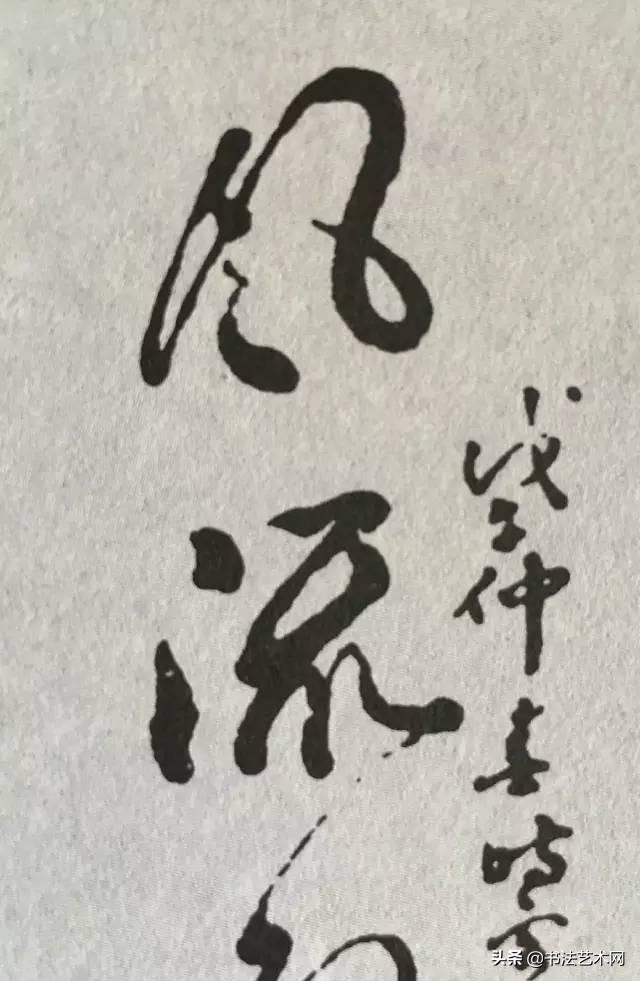 戊子仲春时
风流
头条 @书法艺术网